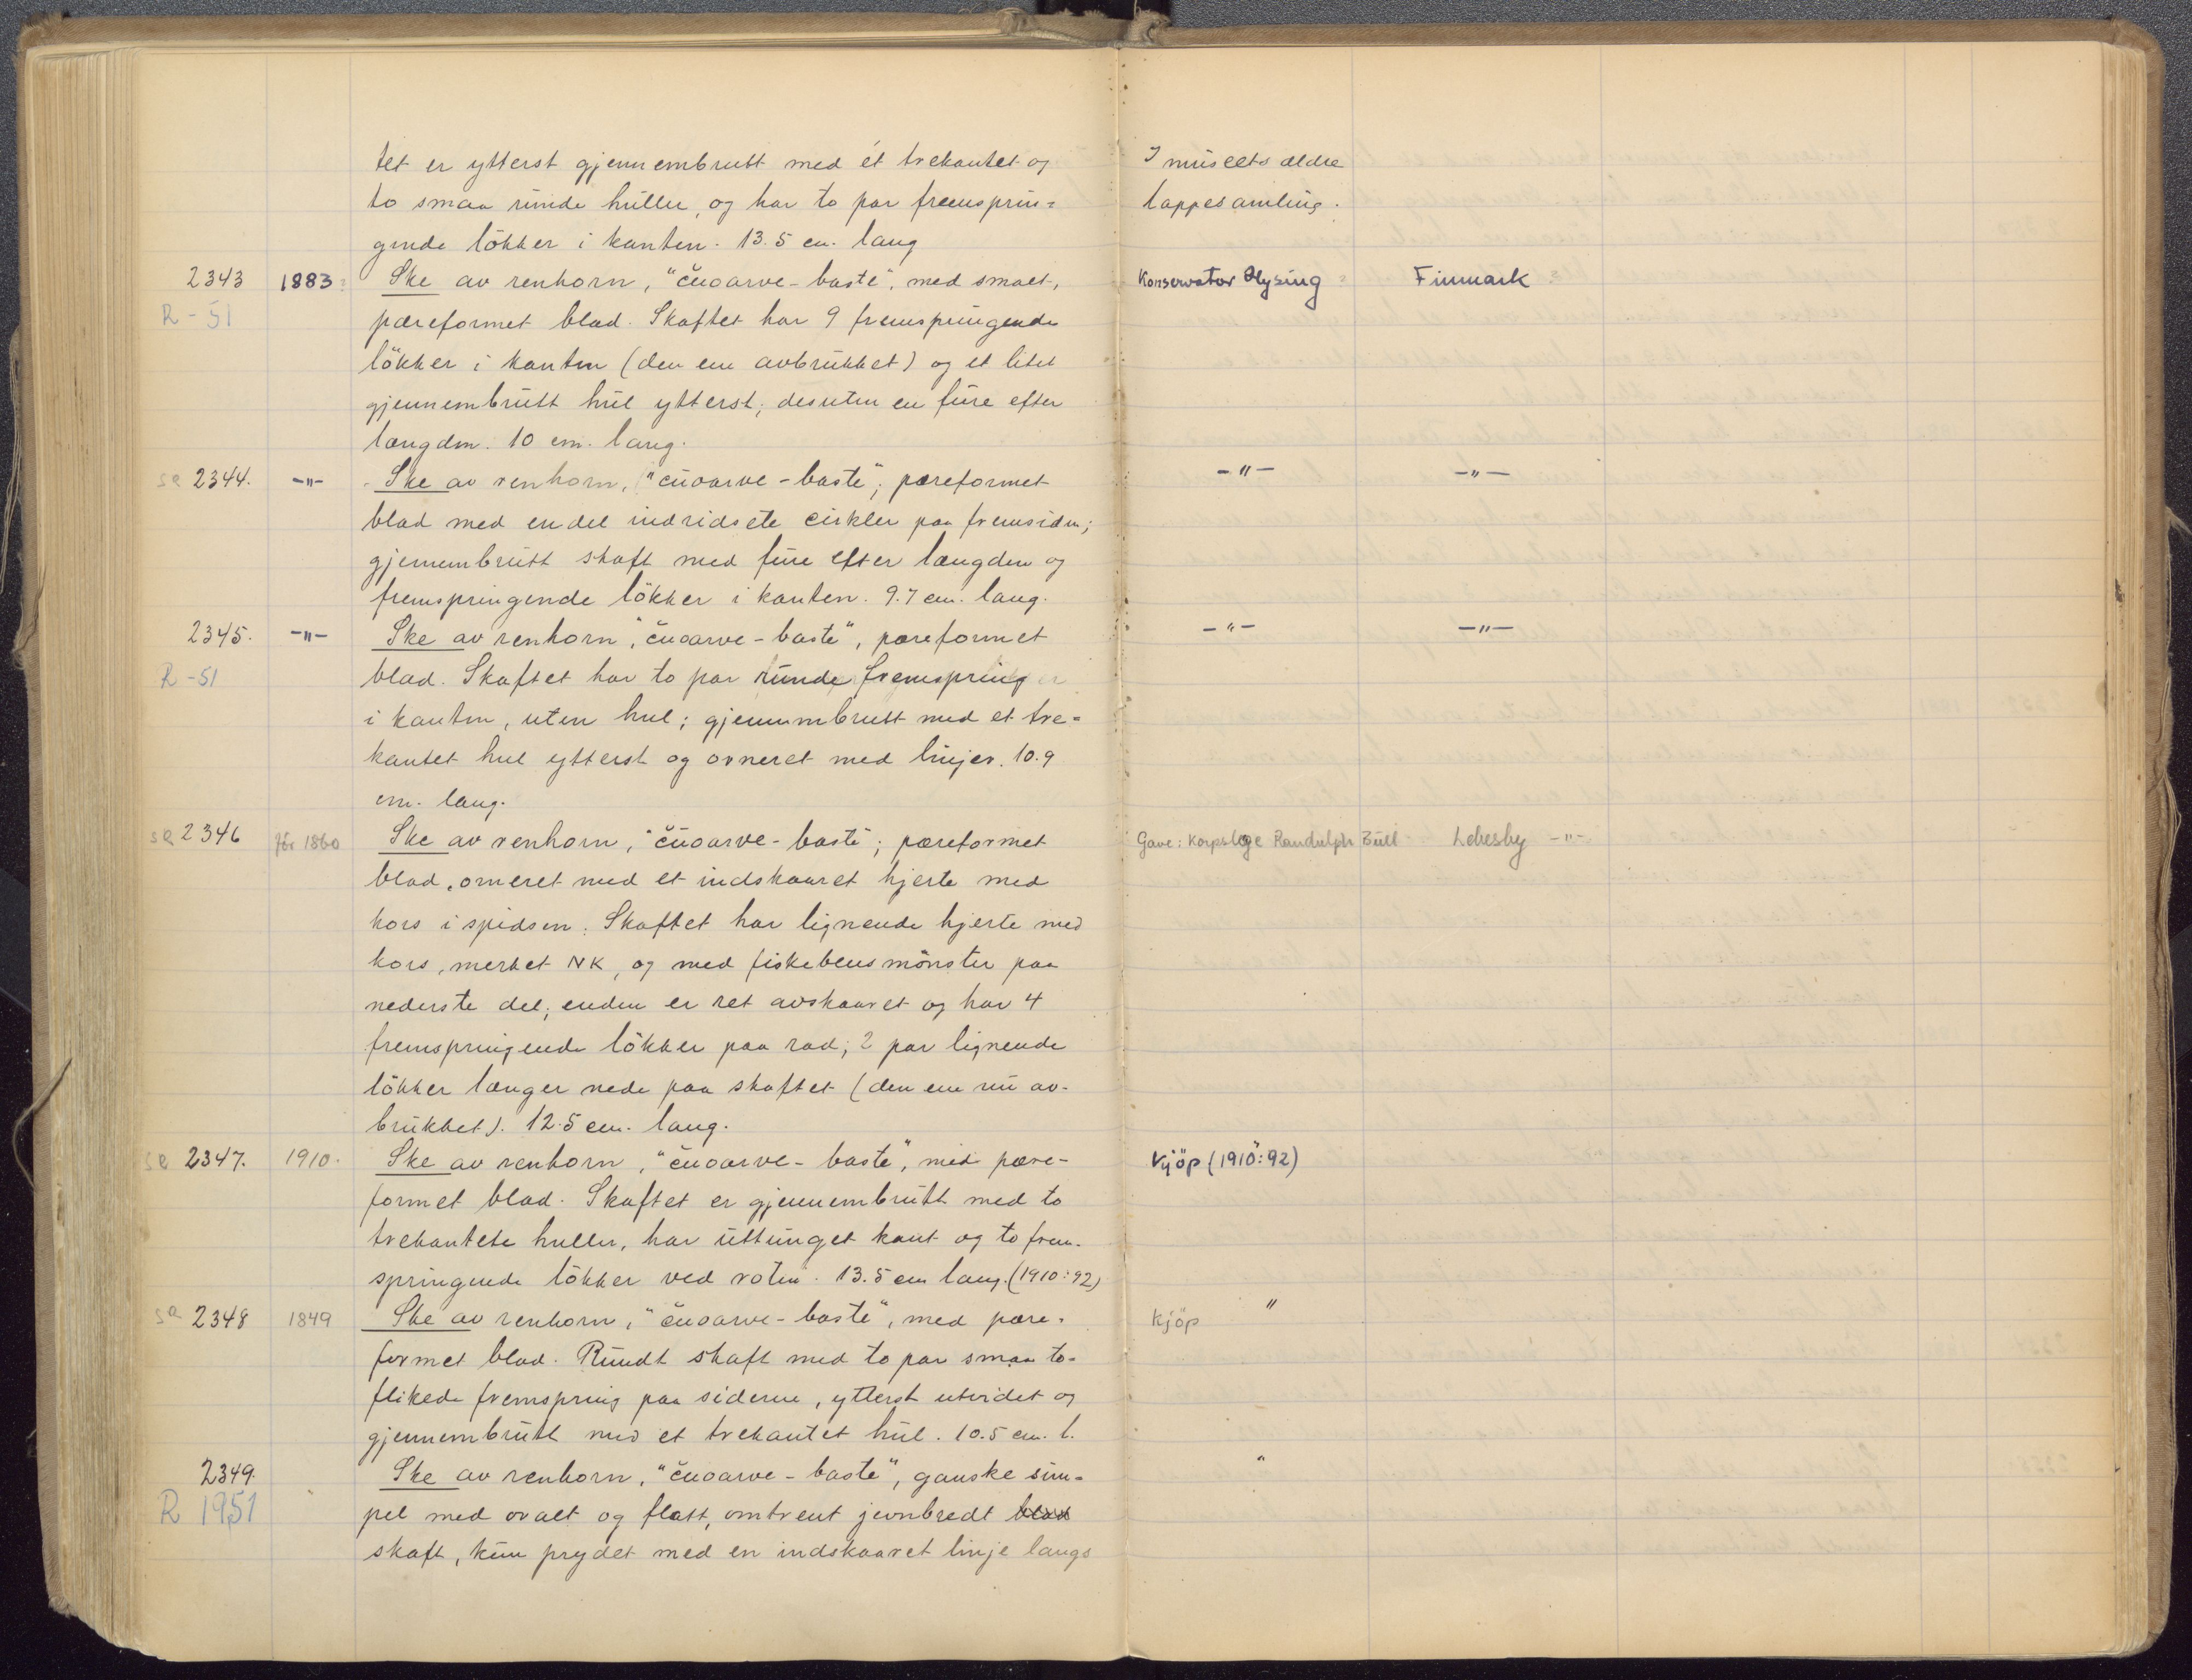 tet er ytterst gjennembrutt med ét trekantet og
to smaa runde huller, og har to par fremsprin=
gende løkker i kanten. 13.5 cm. lang
I museets ældre
lappesamling.
2343 1883 Ske av renhorn, "čuoarve-baste", med smalt,
R-51 pæreformet blad. Skaftet har 9 fremspringende
løkker i kanten (den ene avbrukket) og et litet
gjennembrutt hul ytterst; desuten en fure efter
længden. 10 cm. lang.
Konservator Hysing Finmark
sa 2344. -"- Ske av renhorn, "čuoarve-baste"; pæreformet
blad med en del indridsete cirkler paa fremsiden;
gjennembrutt skaft med fure efter længden og
fremspringende løkker i kanten. 9.7 cm. lang.
-"- -"-
2345. -"- Ske av renhorn, "čuoarve-baste", pæreformet
R-51 blad. Skaftet har to par runde fremspring
i kanten, uten hul; gjennembrutt med et tre=
kantet hul ytterst og orneret med linjer. 10.9
cm. lang.
-"- -"-
sa 2346 før 1860 Ske av renhorn, "čuoarve-baste"; pæreformet
blad, orneret med et indskaaret hjerte med
kors i spidsen. Skaftet har lignende hjerte med
kors, merket NK, og med fiskebensmönster paa
nederste del; enden er ret avskaaret og har 4
fremspringende løkker paa rad; 2 par lignende
løkker længer nede paa skaftet (den ene nu av-
brukket). 12.5 cm. lang.
Gave: Korpslæge Randulph Bull Lebesby -"-
sa 2347. 1910. Ske av renhorn, "čuoarve-baste", med pære-
formet blad. Skaftet er gjennembrutt med to
trekantete huller, har uttunget kant og to frem-
springende løkker ved roten. 13.5 cm lang. (1910:92)
Kjöp (1910:92)
sa 2348 1849 Ske av renhorn, "čuoarve-baste", med pære-
formet blad. Rundt skaft med to par smaa to-
flikede fremspring paa siderne, ytterst utvidet og
gjennembrutt med et trekantet hul. 10.5 cm. l.
Kjöp "
2349. Ske av renhorn, "čuoarve-baste", ganske sim=
R 1951 pel med ovalt og flatt, omtrent jevnbredt blad
skaft, kun prydet med en indskaaret linje langs
"